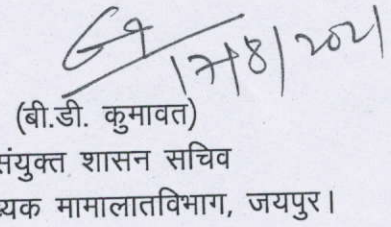 17/8/2021
(बी.डी. कुमावत)
संयुक्त शासन सचिव
मामालातविभाग, जयपुर।